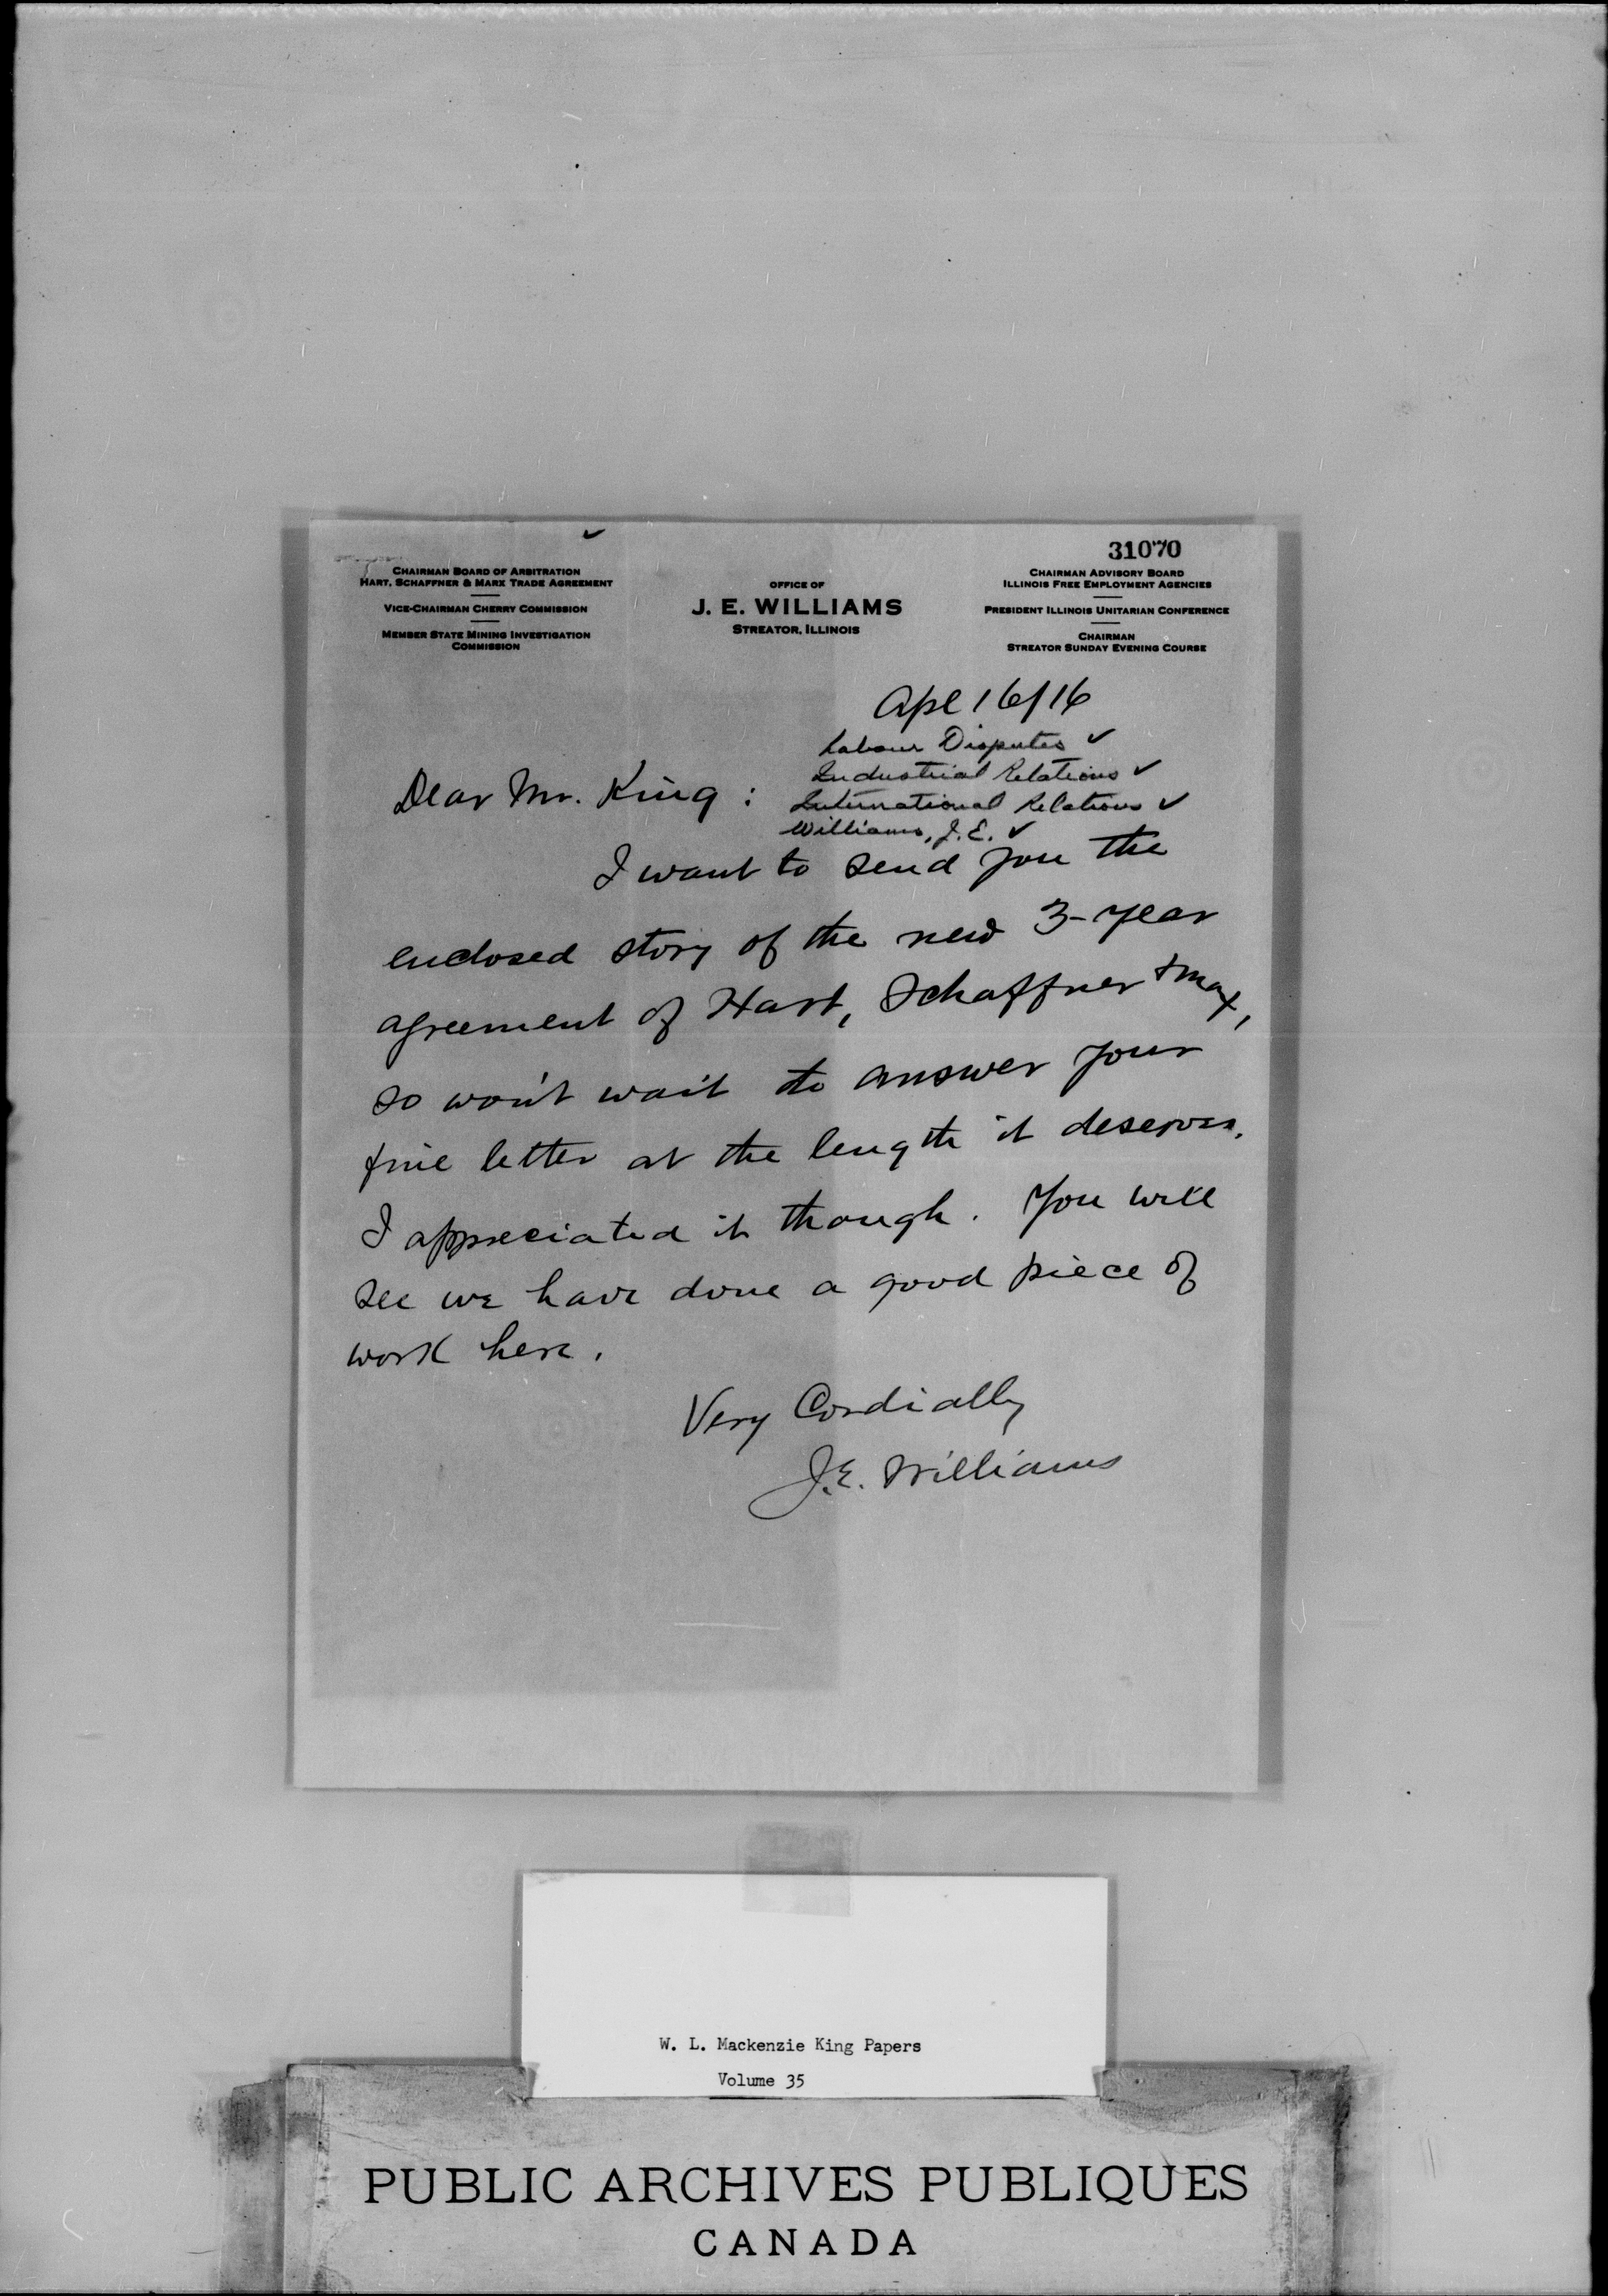 31070
CHAIRMAN BOARD OF ARBITRATION
HART, SCHAFFNER & MARX TRADE AGREEMENT
VICE-CHAIRMAN CHERRY COMMISSION
MEMBER STATE MINING INVESTIGATION
COMMISSION
OFFICE OF
J. E. WILLIAMS
STREATOR, ILLINOIS
CHAIRMAN ADVISORY BOARD
ILLINOIS FREE EMPLOYMENT AGENCIES
PRESIDENT ILLINOIS UNITARIAN CONFERENCE
CHAIRMAN
STREATOR SUNDAY EVENING COURSE
Apl 16/16
Labour Disputes ✓
Industrial Relations ✓
International Relations ✓
Williams, J. E. ✓
Dear Mr. King :
I want to send you the
enclosed story of the new 3-year
agreement of Hart, Schaffner & Max,
so won't wait to answer your
fine letter at the length it deserves.
I appreciated it though. You will
see we have done a good piece of
work here.
Very Cordially
J.E. Williams
W. L. Mackenzie King Papers
Volume 35
PUBLIC ARCHIVES PUBLIQUES
CANADA